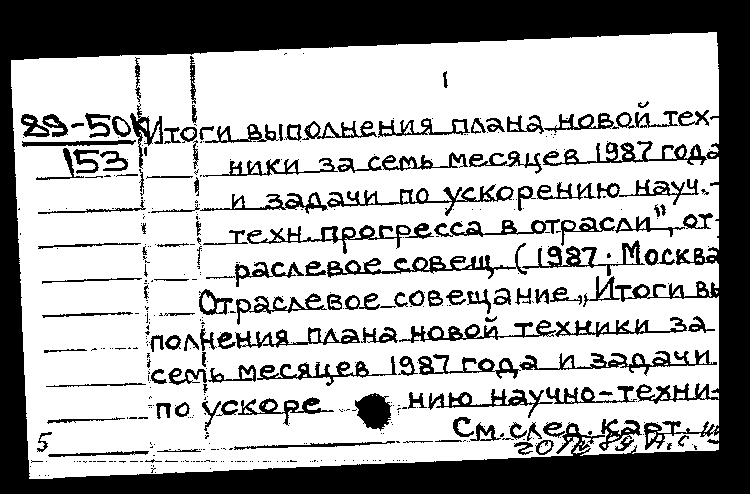 1
89-50К "Итоги выполнения плана новой тех-
153 ники за семь месяцев 1987 года
и задачи по ускорению науч.-
техн. прогресса в отрасли", от-
раслевое совещ. (1987; Москва
Отраслевое совещание „Итоги вы
полнения плана новой техники за
семь месяцев 1987 года и задачи
по ускоре нию научно-техни-
См. след. карт.
5